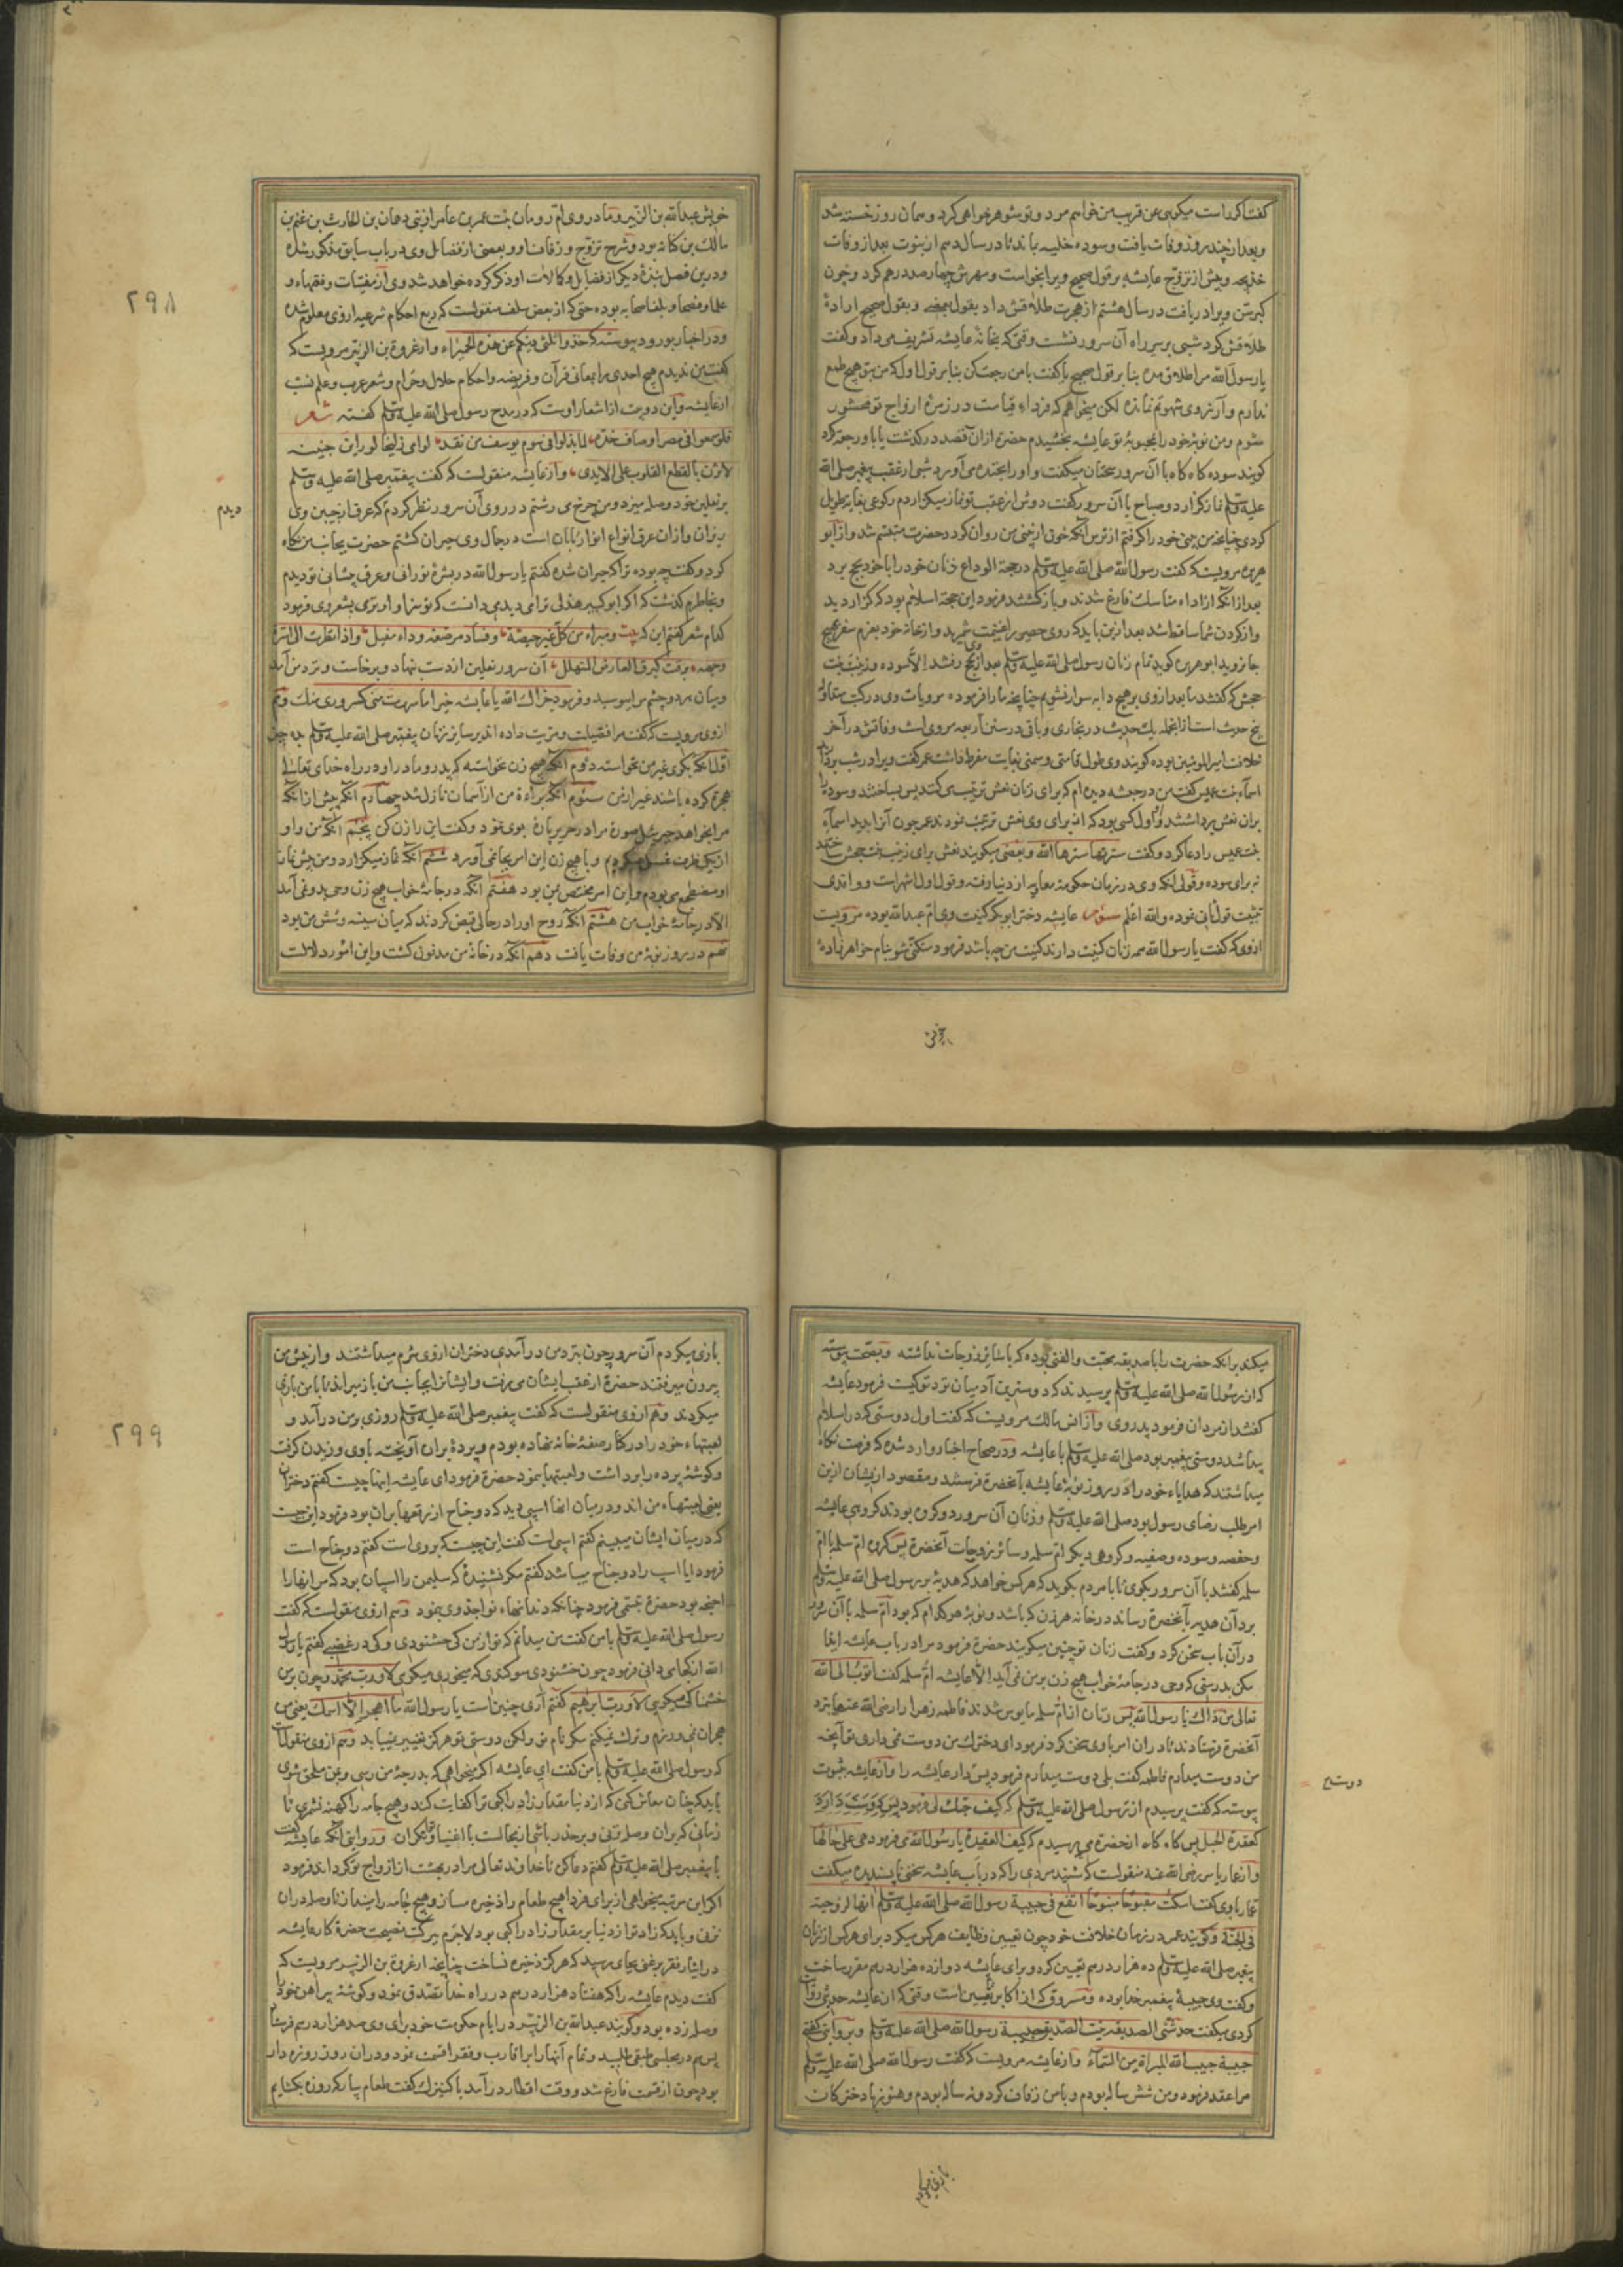 کفت اکر راست میکویی عن قریب من خواهم مرد و تو شوهر خواهی کرد و همان روز خسته شد
و بعد از چند روز وفات یافت و سوده خلیه بماند تا در سال دهم از نبوت بعد از وفات
خدیجه و پیش از تزوّج عایشه بر قول صحیح ویرا بخواست و مهرش چهار صد درهم کرد و چون
کبر سن ویرا دریافت در سال هشتم از هجرت طلاقش داد بقول بعضی و بقول صحیح ارادهٔ
طلاقش کرد شبی بر سر راه آن سرور نشست وقتی که بخانهٔ عایشه تشریف می داد و کفت
یا رسول الله مرا طلاق مده بنا بر قول صحیح یا کفت با من رجعت کن بنا بر قول اول که من بتو هیچ طمع
ندارم و آرزوی شهوتم نمانده لکن میخواهم که فرداء قیامت در زمرهٔ ازواج تو محشور
شوم و من نوبهٔ خود را بمحبوبهٔ تو عایشه بخشیدم حضرة از ان قصد درکذشت یا باو رجعة کرد
کویند سوده کاه کاه با آن سرور سخنان میکفت و اورا بخنده می آورد شبی از عقب پیغمبر صلی الله
علیه وسلم نماز کزارد و صباح با آن سرور کفت دوش از عقب تو نماز میکزاردم رکوعی بغایة طویل
کردی چنانچه من بینی خود را کرفتم از ترس آنکه خون از بینی من روان کردد حضرت متبسّم شد و از ابو
هریره مرویست که کفت رسول الله صلی الله علیه وسلم در حجة الوداع زنان خود را با خود بحج برد
بعد از آنکه از اداء مناسک فارغ شدند و بازکشتند فرمود این حجة اسلام بود که کزاردید
و از کردن شما ساقط شد بعد ازین باید که روی حصیر را غنیمت شمرید و از خانهٔ خود بعزم سفر هیچ
جا نروید ابو هریره کوید تمام زنان رسول صلی الله علیه وسلم بعد از وی بحج رفتند الّا سوده و زینب بنت
جحش که کفتند ما بعد از وی بر هیچ دابه سوار نشویم چنانچه ما را فرموده مرویات وی در کتب متداوله
پنج حدیث است از انجمله یک حدیث در بخاری و باقی در سنن اربعه مرویست و وفاتش در آخر
خلافت امیر المومنین عمر بوده کویند وی طول قامتی و سمنی بغایت مفرط داشت عمر کفت ویرا در شب بردارند
اسماء بنت عمیس کفت من در حبشه دیده ام که برای زنان نعش ترتیب می کنند پس بساختند و سوده را
بران نعش برداشتند و اول کسی بود که از برای وی نعش ترتیب نمودند عمر چون آنرا بدید اسماء
بنت عمیس را دعا کرد و کفت سترتها سترها الله و بعضی میکویند نعش برای زینب بنت جحش ساختند
نه برای سوده و قولی آنکه وی در زمان حکومة معاویه از دنیا رفته و قول اول اشهر است و واقدی
تثبیت قول ثانی نموده والله اعلم سوم عایشه دختر ابو بکر کنیت وی ام عبدالله بوده مرویست
از وی که کفت یا رسول الله همه زنان کنیت دارند کنیت من چه باشد فرمود متکنی شو بنام خواهر زادهٔ
خویش
خویش عبدالله بن الزبیر و مادر وی ام رومان بنت عمر بن عامر از بنی دهمان بن الحارث بن غنم بن
مالک بن کنانه بود و شرح تزوّج و زفاف او و بعضی از فضایل وی در باب سابق مذکور شده
و درین فصل نبذهٔ دیکر از فضایل و کمالات او ذکر کرده خواهد شد وی از مفتیات و فقهاء و
علما و فصحا و بلغا صحابه بوده حتی که از بعض سلف منقولست که ربع احکام شرعیه از وی معلوم شده
و در اخبار بورود پیوسته که خذوا ثلثی دینکم عن هذه الحمیراء و از عروة بن الزبیر مرویست که
کفت من ندیدم هیچ احدی را بمعانی قرآن و فریضه و احکام حلال و حرام و شعر عرب و علم نسب
از عایشه و این دو بیت از اشعار اوست که در مدح رسول صلی الله علیه وسلم کفته شعر
فلو سمعوا فی مصر اوصاف خدّه لما بذلوا فی سوم یوسف من نقد لوامی زلیخا لو راین جبینه
لاثرن بالقطع القلوب علی الایدی و از عایشه منقولست که کفت پیغمبر صلی الله علیه وسلم
بر نعلین خود وصله میزد و من چرخ می رشتم در روی آن سرور نظر کردم که عرق از جبین وی
ریزان و از ان عرق انواع انوار تابان است در جمال وی حیران کشتم حضرت بجانب من نکاه
کرد و کفت چه بوده ترا که حیران شدهٔ کفتم یا رسول الله در بشرهٔ نورانی و عرق پیشانی تو دیدم
و بخاطرم کذشت که اکر ابو کبیر هذلی ترا می دید می دانست که تو سزاوارتری بشعر وی فرمود
کدام شعر کفتم این که بیت و مبراء من کل غبر حیضة وفساد مرضعه وداء مغیل واذا نظرت الی اسرة
وجهه برقت کبرق العارض المتهلل آن سرور نعلین از دست بنهاد و برخاست و نزد من آمد
و میان هر دو چشم مرا ببوسید و فرمود جزاک الله یا عایشه خیرا ما سررت منی کسروری منک و هم
از وی مرویست که کفت مرا فضیلت و مزیت داده اند بر سائر زنان پیغمبر صلی الله علیه وسلم بده چیز
اول آنکه بکری غیر من نخواسته دوم آنکه هیچ زن نخواسته که پدر و مادر او در راه خدای تعالی
هجرة کرده باشند غیر از من سوم آنکه براءة من از آسمان نازل شد چهارم آنکه پیش از انکه
مرا بخواهد جبرئیل صورة مرا در حریر پارهٔ بوی نمود و کفت این را زن کن پنجم آنکه من و او
از یک ظرف غسل میکردیم و با هیچ زن این امر بجا نمی آورد ششم آنکه نماز میکزارد و من پیش نماز
او مضطجع می بودم و این امر مختص بمن بود هفتم آنکه در جامهٔ خواب هیچ زن وحی بدو نمی آمد
الّا در جامهٔ خواب من هشتم آنکه روح اورا در حالی قبض کردند که میان سینه و شش من بود
نهم در روز نوبهٔ من وفات یافت دهم آنکه در خانهٔ من مدفون کشت و این امور دلالت
دیدم
۲۹۸
میکند بر انکه حضرت را با صدیقه محبّت و الفتی بوده که با سائر زوجات نداشته و بصحّت پیوسته
که از رسول الله صلی الله علیه وسلم پرسیدند که دوسترین آدمیان نزد تو کیست فرمود عایشه
کفتند از مردان فرمود پدر وی و از انس مالک مرویست که کفت اول دوستی که در اسلام
پیدا شد دوستی پیغمبر بود صلی الله علیه وسلم با عایشه و در صحاح اخبار وارد شده که فرصت نکاه
میداشتند که هدایاء خود را در روز نوبهٔ عایشه بآنحضرة فرستند و مقصود ایشان ازین
امر طلب رضای رسول بود صلی الله علیه وسلم و زنان آن سرور دو کروه بودند کروهی عایشه
و حفصه و سوده و صفیه و کروهی دیکر ام سلمه و سائر زوجات آنحضرة پس کروه ام سلمه با ام
سلمه کفتند با آن سرور بکوی تا با مردم بکوید که هر کس خواهد که هدیهٔ بر رسول صلی الله علیه وسلم
برد آن هدیه بآنحضرة رساند در خانه هر زن که باشد و نوبهٔ هر کدام که بود ام سلمه با آن سرور
در آن باب سخن کرد و کفت زنان تو چنین میکویند حضرة فرمود مرا در باب عایشه ایذا
مکن بدرستی که وحی در جامهٔ خواب هیچ زن بر من نمی آید الّا عایشه ام سلمه کفت اتوب الی الله
تعالی من ذاک یا رسول الله پس زنان از ام سلمه مایوس شدند فاطمه زهرا را رضی الله عنها نزد
آنحضرة فرستادند تا در ان امر با وی سخن کرد فرمود ای دخترک من دوست نمی داری تو آنچه
من دوست میدارم فاطمه کفت بلی دوست میدارم فرمود پس دار عایشه را و از عایشه بثبوت
پیوسته که کفت پرسیدم از رسول صلی الله علیه وسلم که کیف حبّک لی فرمود
کعقدة الحبل پس کاه کاه از حضرة می پرسیدم که کیف العقیدة یا رسول الله می فرمود هی علی حالها
و از عمار یاسر رضی الله عنه منقولست که شنید مردی را که در باب عایشه سخنی ناپسندیده میکفت
عمار با وی کفت اسکت مقبوحا منبوحا اتقع فی حبیبة رسول الله صلی الله علیه وسلم انها لزوجته
فی الجنة و کویند عمر در زمان خلافت خود چون تعیین وظایف هر کس میکرد برای هر کس از زنان
پیغمبر صلی الله علیه وسلم ده هزار درهم تعیین کرد و برای عایشه دوازده هزار درهم مقرر ساخت
و کفت وی حبیبهٔ پیغمبر خدا بوده و مسروق که از اکابر تابعین است وقتی که از عایشه حدیثی روایت
کردی میکفت حدثتنی الصدیقة بنت الصدیق حبیبة رسول الله صلی الله علیه وسلم و بروایتی کفتی
حبیبة حبیب الله المبراة من السماء و از عایشه مرویست که کفت رسول الله صلی الله علیه وسلم
مرا عقد فرمود و من شش ساله بودم و با من زفاف کرد و نه ساله بودم و هنوز با دخترکان
دوست
بازی میکردم
بازی میکردم آن سرور چون بنزد من درآمدی دختران از وی شرم میداشتند و از پیش من
بیرون میرفتند حضرة از عقب ایشان می رفت و ایشانرا بجانب من باز میراند تا با من بازی
میکردند و هم از وی منقولست که کفت پیغمبر صلی الله علیه وسلم روزی بر من درآمد و
لعبتهاء خود را در کنار صفهٔ خانه نهاده بودم و پردهٔ بران آویخته بادی وزیدن کرفت
و کوشهٔ پرده را برداشت و لعبتها بنمود حضرة فرمود ای عایشه اینها چیست کفتم دختران
یعنی لعبتهاء من اند و در میان انها اسبی دید که دو جناح از رقعها بران بود فرمود این چیست
که در میان ایشان میبینم کفتم اسپی است کفت این چیست که بر وی است کفتم دو جناح است
فرمود ایا اسپ را دو جناح میباشد کفتم مکر نشنیدهٔ که سلیمن را اسپان بود که مر انها را
اجنحه بود حضرة تبسّمی فرمود چنانکه دندانهاء نواجذ وی بنمود و هم از وی منقولست که کفت
رسول صلی الله علیه وسلم با من کفت من میدانم که تو از من کی خشنودی و کی در غضبی کفتم یا رسول
الله از کجا می دانی فرمود چون خشنودی سوکندی که میخوری میکوی لا ورب محمد و چون بر من
خشمناکی میکویی لا ورب ابرهیم کفتم آری چنین است یا رسول الله ما اهجر الّا اسمک یعنی من
هجران نمی ورزم و ترک نمیکنم مکر نام تو ولکن دوستی تو هرکز تغییر نمییابد و هم از وی منقولست
که رسول صلی الله علیه وسلم با من کفت ای عایشه اکر میخواهی که بدرجهٔ من رسی و بمن ملحق شوی
باید که چنان معاش کنی که از دنیا مقدار زاد راکبی ترا کفایت کند و هیچ جامه را کهنه نشمری تا
زمانی که بران وصله زنی و بر حذر باشی از مجالست با اغنیا و توانکران و در روایتی آنکه عایشه کفت
با پیغمبر صلی الله علیه وسلم کفتم دعا کن تا خداوند تعالی مرا در بهشت از ازواج تو کرداند فرمود
اکر این مرتبه میخواهی از برای فردا هیچ طعام را ذخیره مساز و هیچ جامه را مینداز تا وصله دران
نزنی و باید که زاد تو از دنیا بر مقدار زاد راکبی بود لاجرم ببرکت نصیحت حضرة کار عایشه
در ایثار فقر بر غنی بجای رسید که هرکز ذخیره نساخت چنانچه از عروة بن الزبیر مرویست که
کفت دیدم عایشه را که هفتاد هزار درهم در راه خدا تصدّق نمود و کوشهٔ پیراهن خود را
وصله زده بود و کویند عبدالله بن الزبیر در ایام حکومت خود برای وی صد هزار درهم فرستاد
پس هم در مجلس طبقی طلبید و تمام آنها را بر اقارب و فقرا قسمت نمود و دران روز روزه دار
بود چون از قسمت فارغ شد و وقت افطار درآمد با کنیزک کفت طعام بیار که روزه بکشایم
۲۹۹